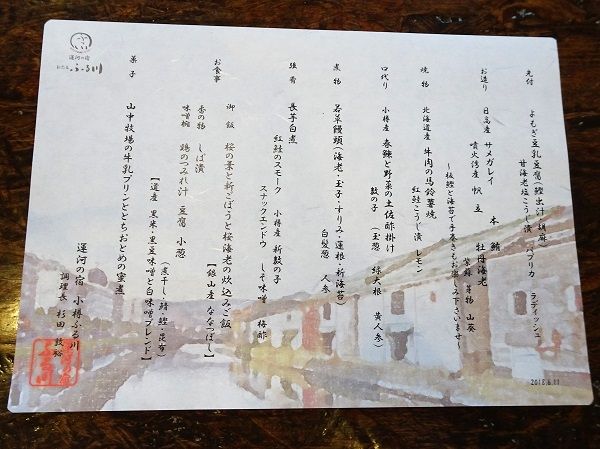 運河の宿
おたる ふる川
先付
よもぎ豆乳豆腐(鰹出汁・胡麻)
甘海老塩こうじ漬 パプリカ ラディッシュ
お造り
日高産 サメガレイ 本鮪
噴火湾産 帆立 牡丹海老
芽物 山葵
～板鰹と海苔で手巻きもお楽しみ下さいませ～
焼物
北海道産 牛肉の馬鈴薯焼
紅鮭こうじ漬 レモン
口代り
小樽産 春鰊と野菜の土佐酢掛け
数の子 (玉葱 緑大根 黄人参)
煮物
若草饅頭(海老・玉子・すりみ・蓮根・新海苔)
白髪葱 人参
強肴
長芋白煮
紅鮭のスモーク 小樽産 新数の子
スナックエンドウ しそ味噌 梅酢
お食事
御飯 桜の葉と新ごぼうと桜海老の炊込みご飯
【銀山産 ななつぼし】
香の物 しば漬
味噌椀 鶏のつみれ汁 豆腐 小葱
(煮干し・鯖・鰹・昆布)
【道産 黒米・黒豆味噌と白味噌ブレンド】
菓子
山中牧場の牛乳プリンととちおとめの蜜煮
運河の宿 小樽ふる川
調理長 杉田
2018.6.11